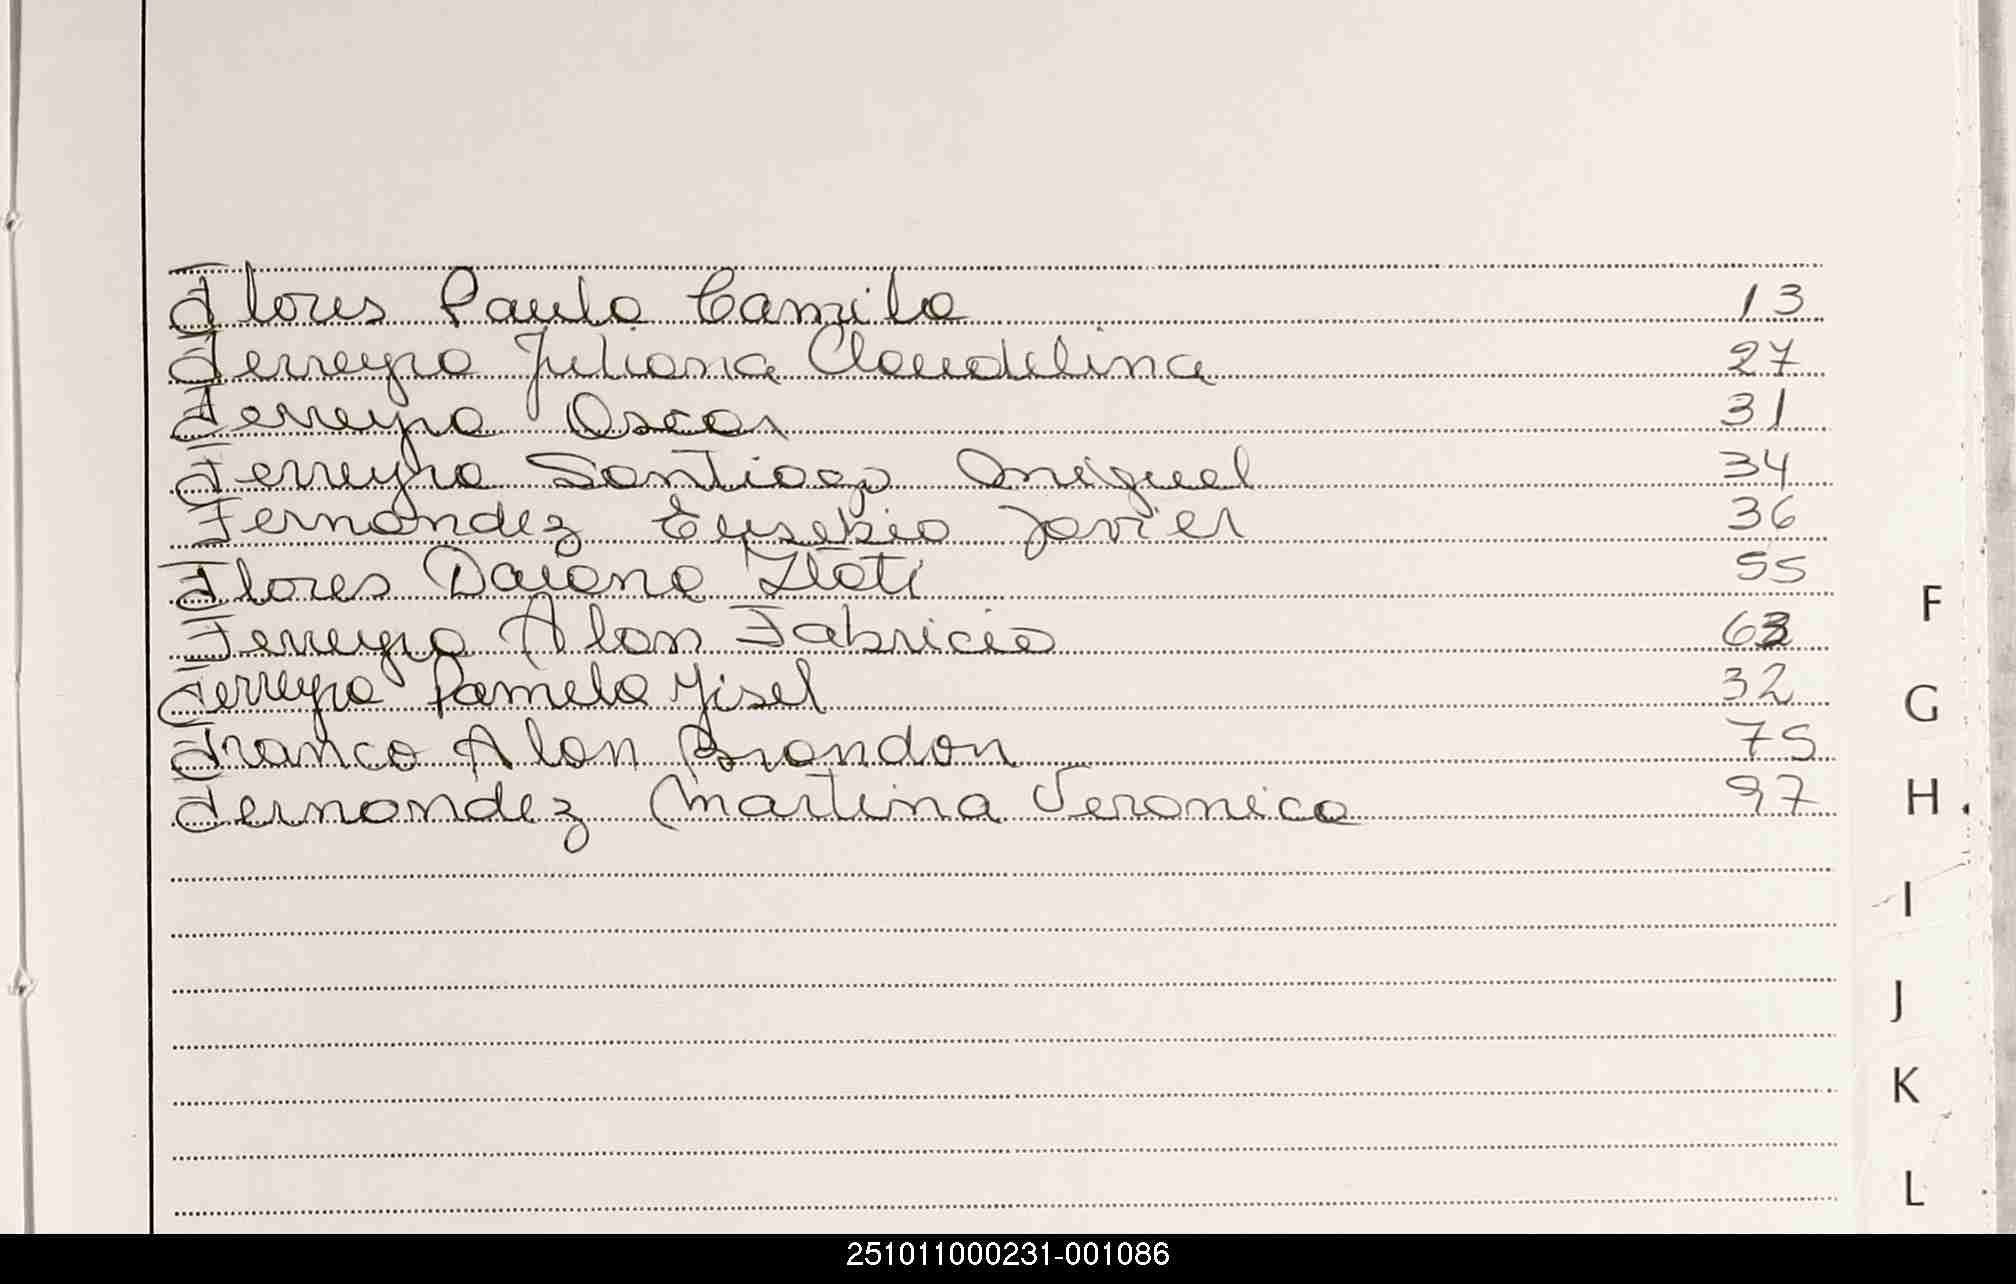 Flores Paula Camila 13
Ferreyra Juliana Claudelina 27
Ferreyra Oscar 31
Ferreyra Santiago Miguel 34
Fernandez Eusebio Javier 36
Flores Daiana Itati 55
Ferreyra Alan Fabricio 63
Ferreyra Pamela Yisel 32
Franco Alan Brandon 75
Fernandez Martina Veronica 97
F
G
H
I
J
K
L
251011000231-001086